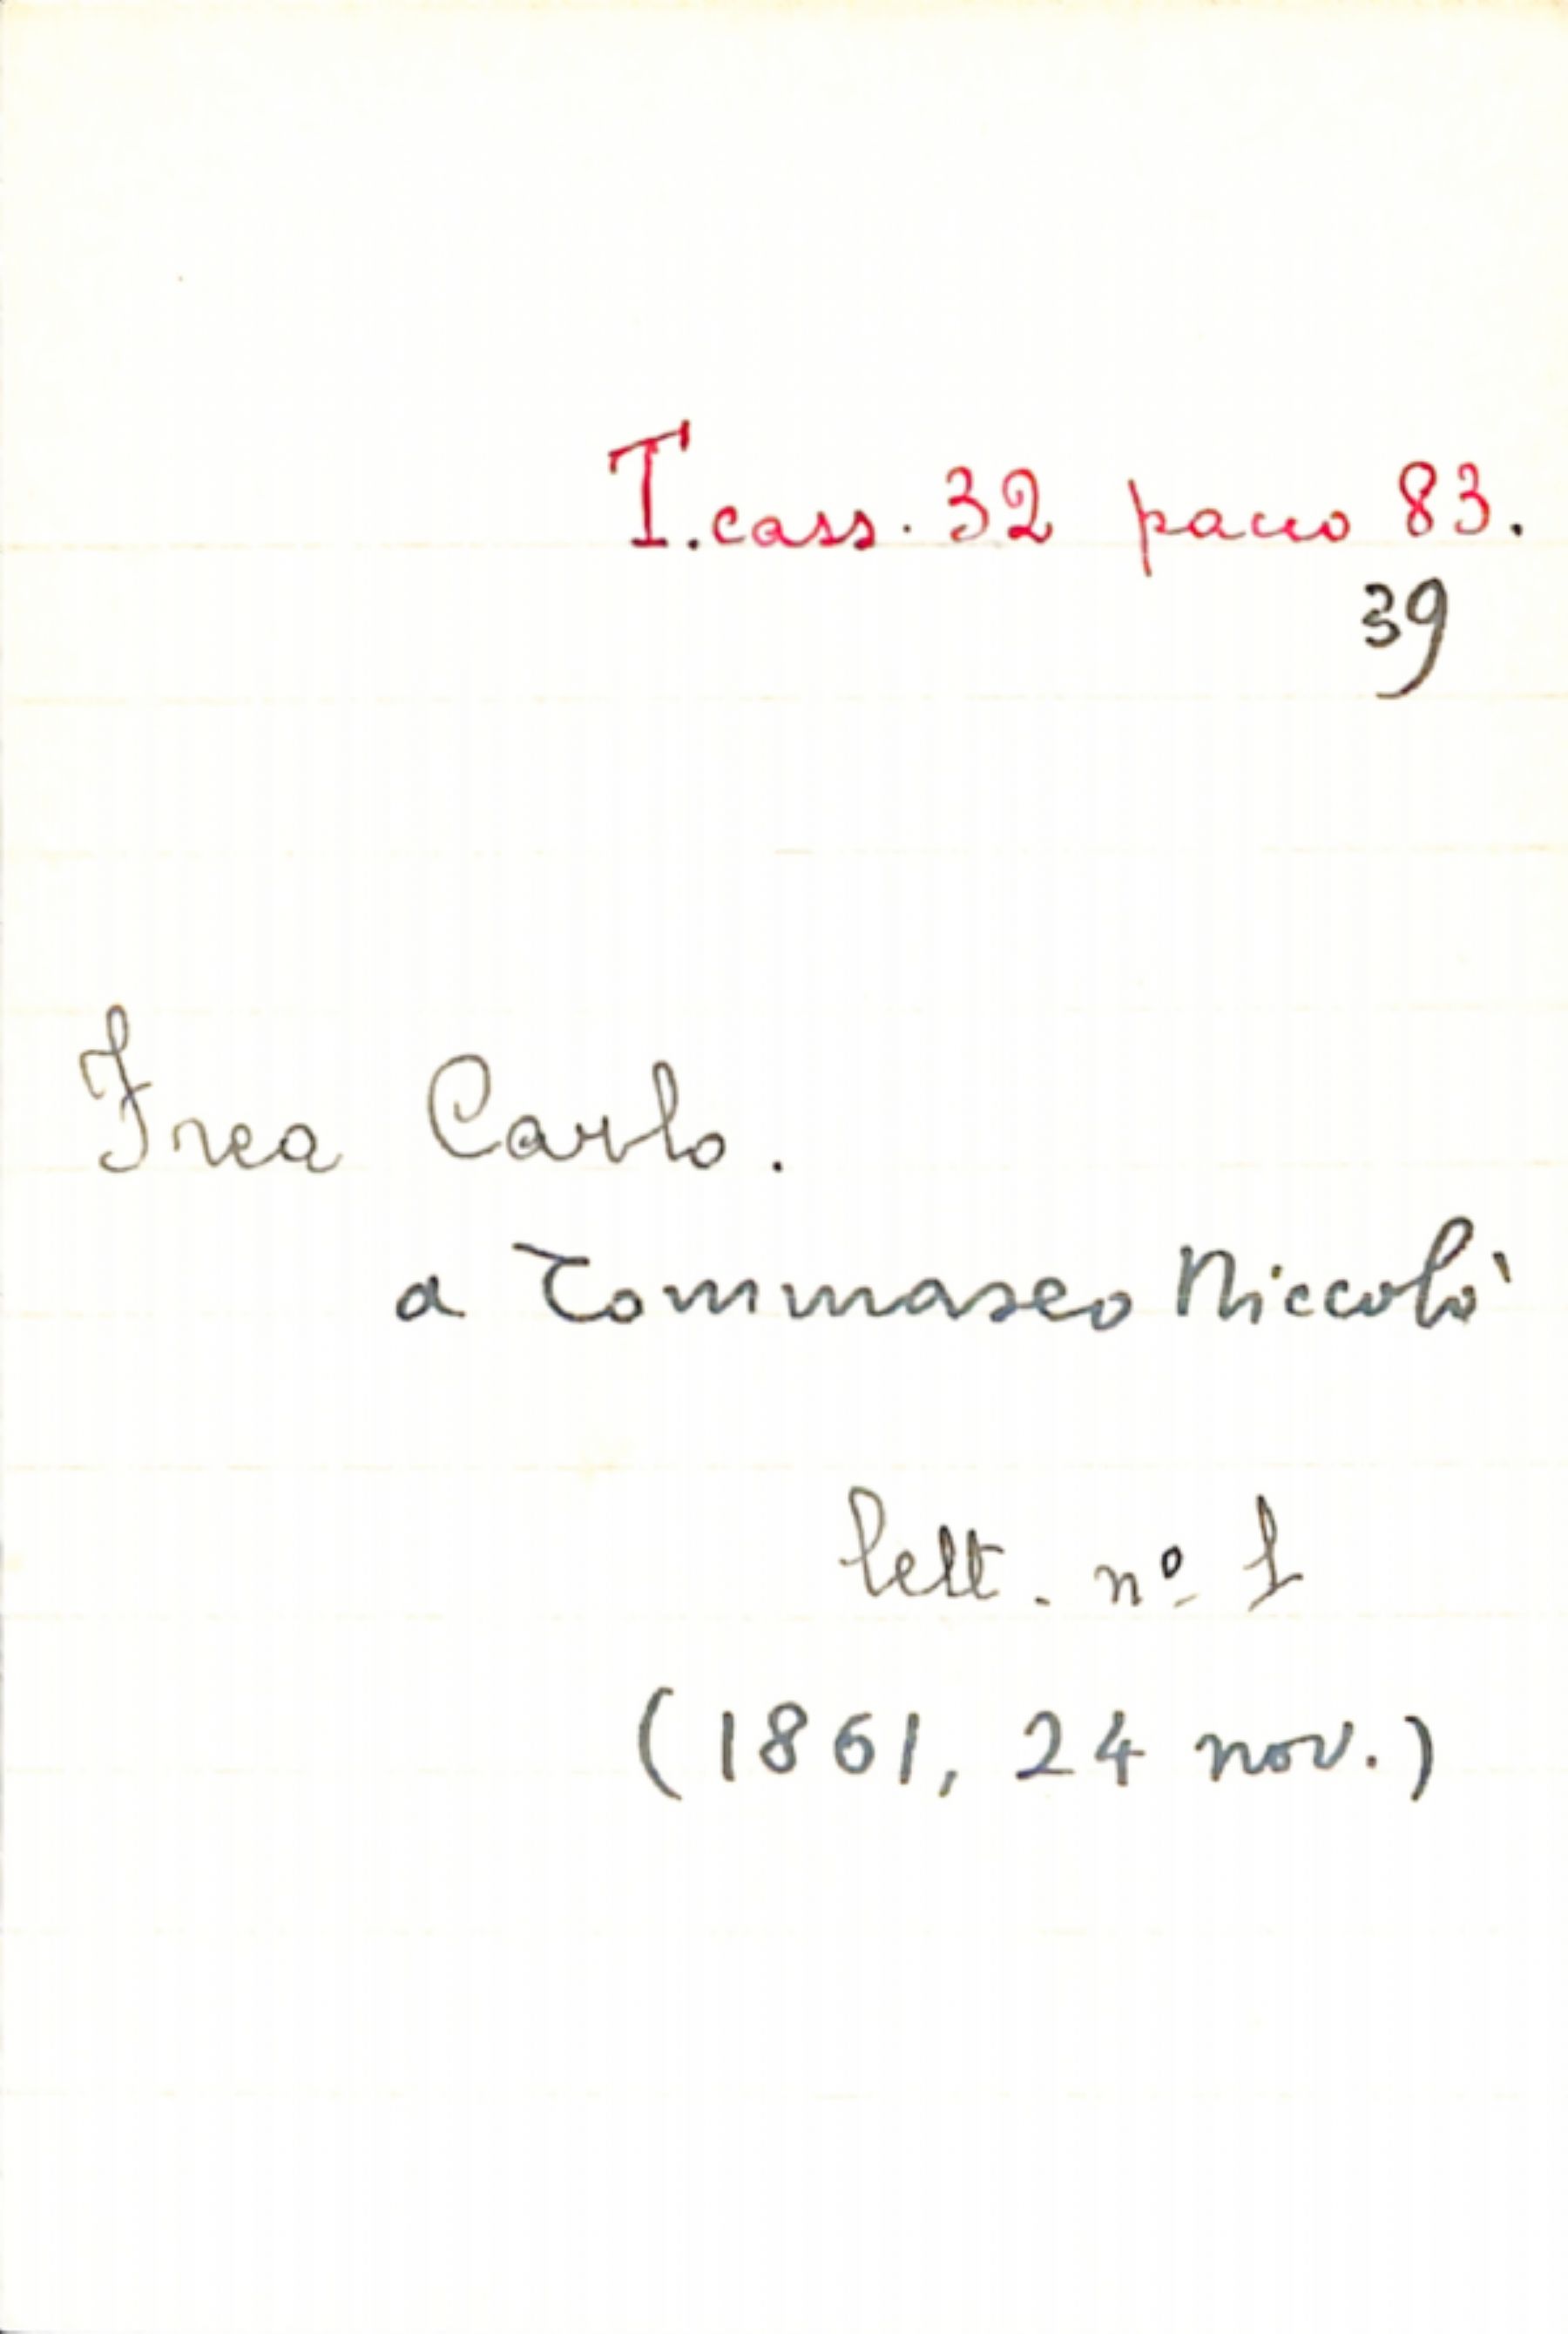 T. cass. 32 pacco 83.
39
Frea Carlo.
a Tommaseo Niccolò
lett. nº 1
(1861, 24 nov.)